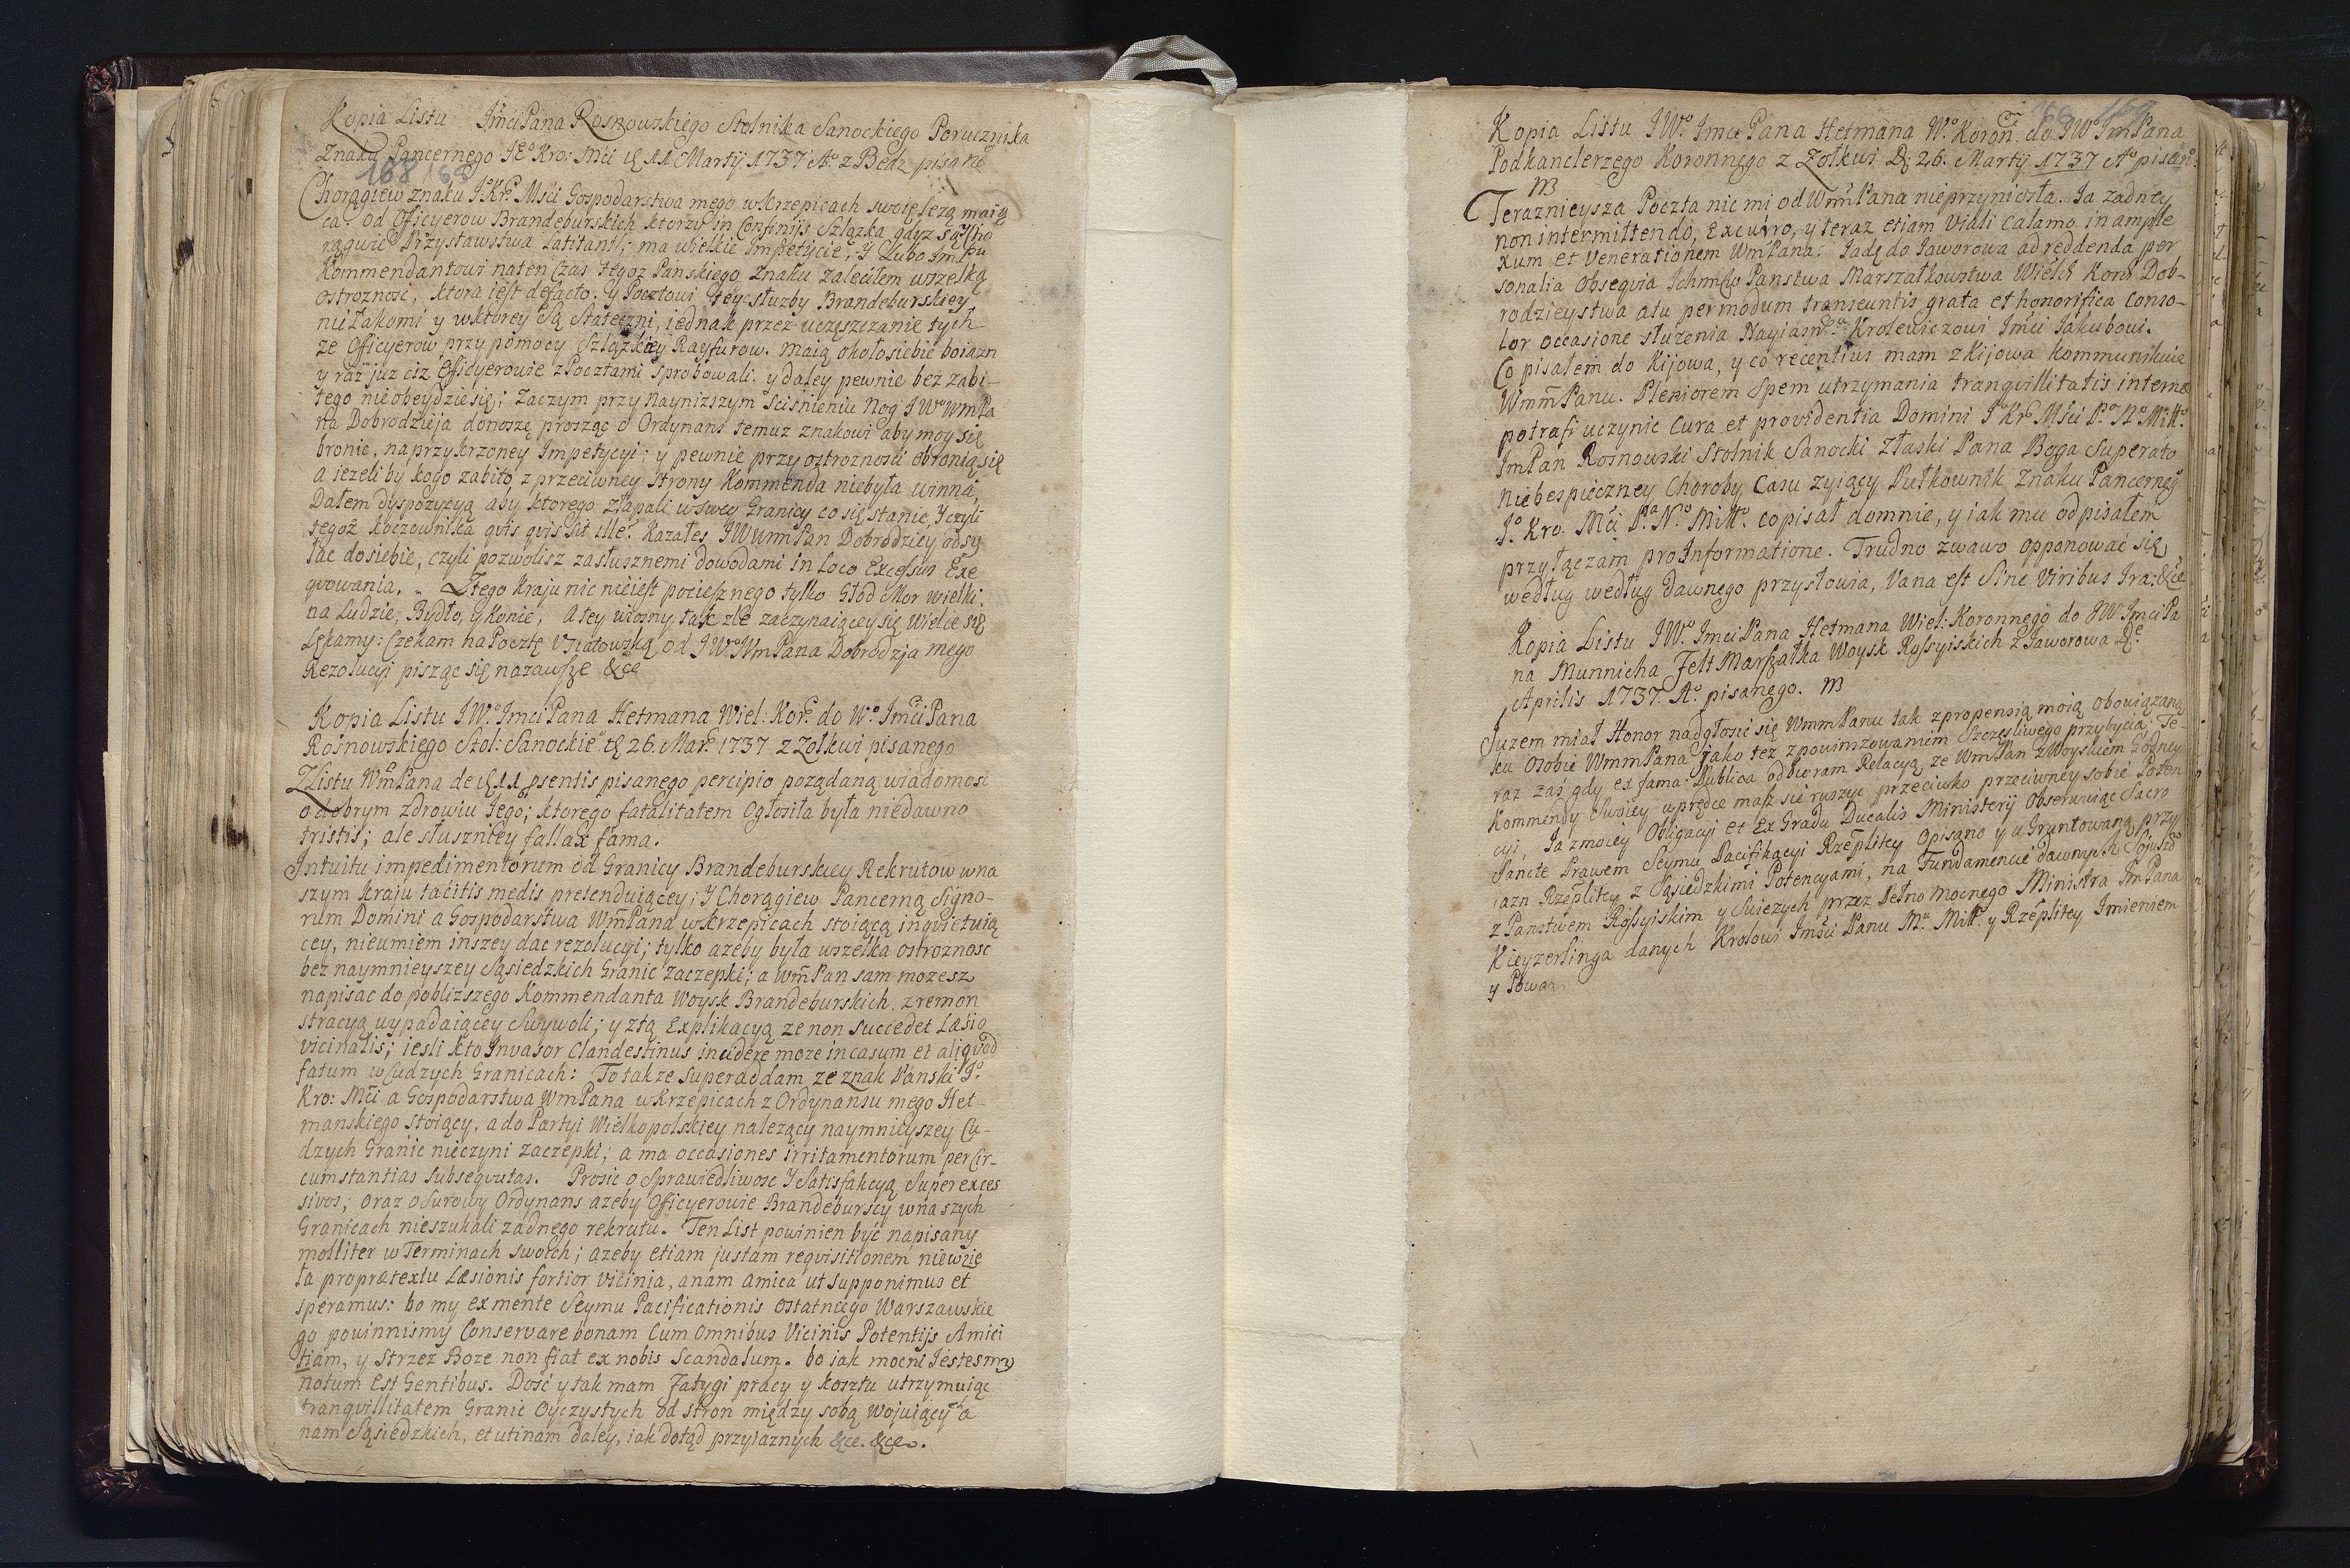 Kopia Listu JmciPana Rosnowskiego Stolnika Sanockiego Porucznika
Znaku Pancernego JEo Kro: Mci 11 Martÿ 1737 Ao z Bełz pisane
168
Chorągiew znaku Jo Kr. Msci Gospodarstwa mego w Krzepicach swoię leżą maią
ca. od Officyerow Brandeburskich ktorzy in Confinijs Szląska gdyz są Cho
rągwie Przystawstwa latitant; ma wielkie Impetycie; J Lubo Jm Pu
Kommendantowi naten czas tegoz Panskiego Znaku zaleciłem wszelką
ostroznosć, ktora iest defacto. y Pocztowi teysłuzby Brandeburskiey
niełakomi y wktorey są Stateczni, iednak przez uczęszczanie tych
ze Officyerow przy pomocy Szląskiey Rayfurow. maią około siebie boiazn
y raz juz ciz Officyerowie z Pocztami sprobowali. y daley pewnie bez zabi-
tego nieobeydziesię; Zaczym przy Naynizszym Scisnieniu Nog JWo WmPa
na Dobrodzieja donoszę prosząc o Ordynans temuz znakowi aby mogł się
bronic, naprzykrzoney Impetycyi; y pewnie przy ostroznosci obronią się
a iezeliby kogo zabito z przeciwney Strony Kommenda niebyła winna,
Dałem dyspozycyą aby ktorego złapali w swey Granicy co się stanie, J czyli
tegoż Koczownika qvis qvis sit ille? kazałes JWWmPan Dobrodziey odsy
łac dosiebie, czyli pozwolisz zasłusznemi dowodami in Loco Excessus Exe
qvowania. Ztego Kraju nic nieiest pociesznego tylko Głod Mor wielki
na Ludzie, Bydło, y Konie, Atey wiosny tak zle zaczynaiącey się Wielce się
Lękamy: Czekam na Pocztę od JWo WmPana Dobrodzja mego
Rezolucyi pisząc się nazawsze &ce
Kopia Listu JWo JmciPana Hetmana Wiel: Kor. do Wo JmciPana
Rosnowskiego Stol: Sanockie 26. Mar. 1737 z Zołkwi pisanego
Zlistu WmPana de 11 psentis pisanego percipio pożądaną wiadomosc
o dobrym zdrowiu Jego; ktorego fatalitatem Ogłosiła była niedawno
tristis; ale słuszniey fallax fama.
Intuitu impedimentorum od Granicy Brandeburskiey Rekrutow wna
szym kraju tacitis medis pretenduiącey; J Chorągiew Pancerną Signo-
rum Domini a Gospodarstwa WmPana w Krzepicach stoiącą inqvietuią
cey, nieumiem inszey dac rezolucyi; tylko azeby była wszelka ostroznosc
bez naymnieyszey Sąsiedzkich Granic zaczepki; a WmPan sam mozesz
napisac do poblizszego Kommendanta Woysk Brandeburskich, z remon
stracyą wypadaiącey Swywoli; y ztą Explikacyą ze non succedet Læsio
vicinalis; iesli kto Invasor Clandestinus incidere moze in casum et aliqvod
fatum w Cudzych Granicach: To takze superaddam ze znak Panski Jo
Kro: Mci a Gospodarstwa WmPana w Krzepicach z Ordynansu mego Het-
manskiego Stoiący, a do Partyi Wielkopolskiey nalezący naymnieyszey Cu-
dzych Granic nieczyni zaczepki; a ma occasiones irritamentorum per Cir-
cumstantias subseqvutas. Prosic o Sprawiedliwosc J Satisfakcyą super exces
sivos; oraz o Surowy Ordynans azeby Officyerowie Brandeburscy w naszych
Granicach nieszukali zadnego rekrutu. Ten List powinien być napisany
molliter w Terminach swoich; azeby etiam justam reqvisitionem niewzię
ła pro prætextu Læsionis fortior vicinia, anam amica ut supponimus et
speramus: bo my ex mente Seymu Pacificationis ostatniego Warszawskie
go powinnismy Conservare bonam Cum Omnibus Vicinis Potentijs Amici
tiam, y Strzez Boze non fiat ex nobis Scandalum. bo iak mocni Jestesmy
notum Est Gentibus. Dosć y tak mam Fatygi pracy y kosztu utrzymuiąc
tranqvillitatem Granic Oyczystych od stron między sobą Wojuiący a
nam Sąsiedzkich, et utinam daley, iak dotąd przyiaznych &ce. &ce.
169
Kopia Listu JWo Jmci Pana Hetmana Wo Koron. do JWo JmPana
Podkanclerzego Koronnego z Zołkwi D: 26. Martÿ 1737 Ao pisan:
Teraznieysza Poczta nic mi od WmPana nieprzyniosła. Ja zadney
non intermittendo, Excurro, y teraz etiam Viali Calamo in ample
xum et Venerationem WmPana. Jadę do Jaworowa ad reddenda per
sonalia Obseqvia Ichmciow Panstwa Marszałkowstwa Wielch Koro Dob-
rodzieystwa atu permodum transeuntis grata et honorifica Conso-
lor occasione służenia Nayiasn: Krolewiczowi Jmci Jakubowi.
Co pisałem do Kijowa, y co recentius mam z Kijowa kommunikuię
WmmPanu. Pleniorem Spem utrzymania tranqvillitatis internæ
potrafi uczynic Cura et providentia Domini Jo Kr. Msci P. No Mił.
JmPan Rosnowski Stolnik Sanocki Złaski Pana Boga Superato
niebespieczney Choroby Casu zyiący Pułkownik Znaku Pancerneg
Jo Kro. Mci Pa No Miłto. co pisał domnie, y iak mu odpisałem
przyłączam pro Informatione. Trudno zwawo opponować się
według według dawnego przysłowia, Vana est Sine Viribus Ira: &ce
Kopia Listu JWo JmciPana Hetmana Wiel: Koronnego do JW JmciPa
na Munnicha Felt Marszałka Woysk Rossyiskich z Jaworowa
Aprilis 1737. Ao pisanego.
Juzem miał Honor nadgłosic się WmmPanu tak z propensią moią obowiązaną
ku Osobie WmmPana jako tez z powinszowaniem Szczęsliwego przybycia; Te-
raz zaś gdy ex fama Publica odbieram Relacyą, ze WmPan z Woyskiem Godney
Kommendy Swoiey wprędce masz sie ruszyc przeciwko przeciwney sobie Poten
cyi, Ja z moiey Obligacyi et Ex Gradu Ducalis Ministerij Obserwuiąc Sacro
Sancte Prawem Seymu Pacifikacyi Rzeplitey Opisano y u Gruntowaną przy
iazn Rzeplitey z Sąsiedzkimi Potencyami, na Fundamencie dawnych Sojuszo
z Panstwem Rossyiskim y Swiezych przez Pełno mocnego Ministra JmPana
Kieyzerlinga danych Krolowi Jmsci Panu M. Mił. y Rzeplitey Jmieniem
y Powa